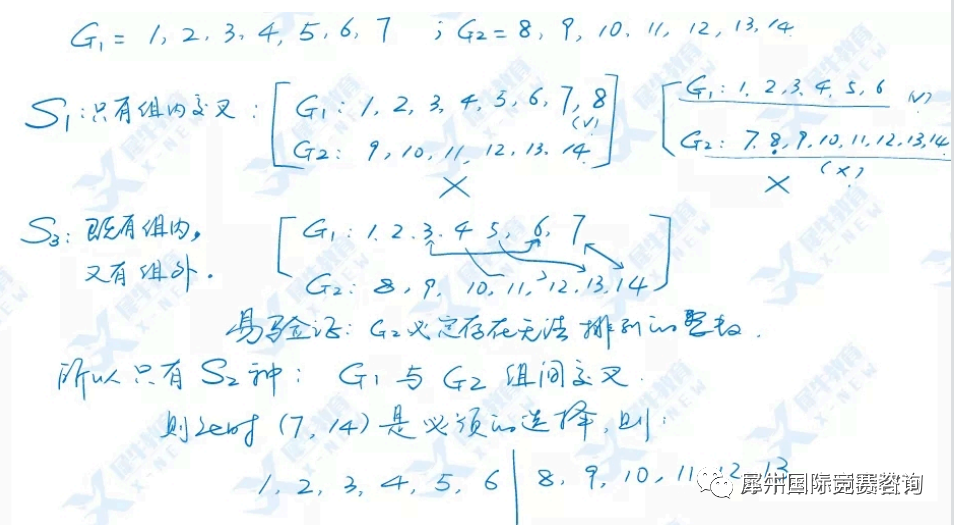 G₁ = 1, 2, 3, 4, 5, 6, 7 ; G₂ = 8, 9, 10, 11, 12, 13, 14
S₁: 只有组内交叉: [ G₁: 1, 2, 3, 4, 5, 6, 7, 8 (√) [ G₁: 1, 2, 3, 4, 5, 6 (√)
G₂: 9, 10, 11, 12, 13, 14 ] G₂: 7, 8, 9, 10, 11, 12, 13, 14 (×)
× ×
S₃: 既有组内, [ G₁: 1, 2, 3, 4, 5, 6, 7 ]
又有组外. G₂: 8, 9, 10, 11, 12, 13, 14
易验证: G₂必定存在无法排列的整数.
所以只有S₂种: G₁与G₂组间交叉.
则此时 (7, 14) 是必须的选择, 则:
1, 2, 3, 4, 5, 6 | 8, 9, 10, 11, 12, 13
犀牛国际竞赛咨询
犀牛教育
X-NEW